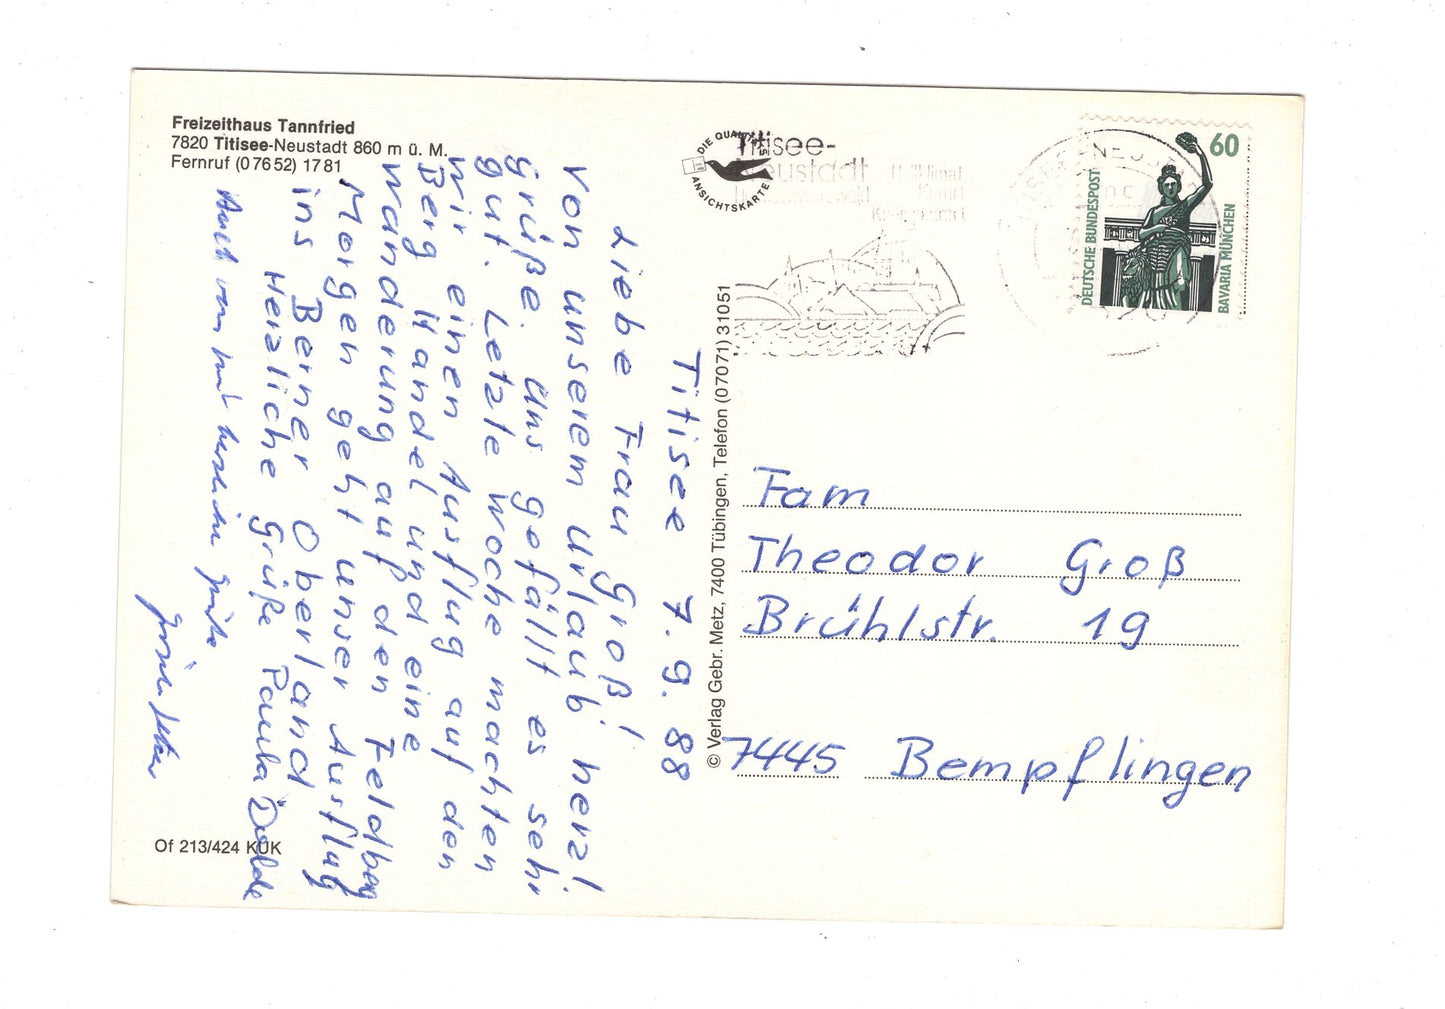 Freizeithaus Tannfried
7820 Titisee-Neustadt 860 m ü. M.
Fernruf (0 76 52) 17 81
Titisee 7. 9. 88
Liebe Frau Groß!
Von unserem Urlaub herzl.
Grüße. Uns gefällt es sehr
gut. Letzte Woche machten
wir einen Ausflug auf den
Berg Handel und eine
Wanderung auf den Feldberg
Morgen geht unser Ausflug
ins Berner Oberland
Herzliche Grüße Paula Dolde
Auch von mir herzliche Grüße
Of 213/424 KUK
© Verlag Gebr. Metz, 7400 Tübingen, Telefon (07071) 31051
DIE QUALITÄTS
ANSICHTSKARTE
Titisee-
Neustadt
60
DEUTSCHE BUNDESPOST
BAVARIA MÜNCHEN
Fam
Theodor Groß
Brühlstr. 19
7445 Bempflingen